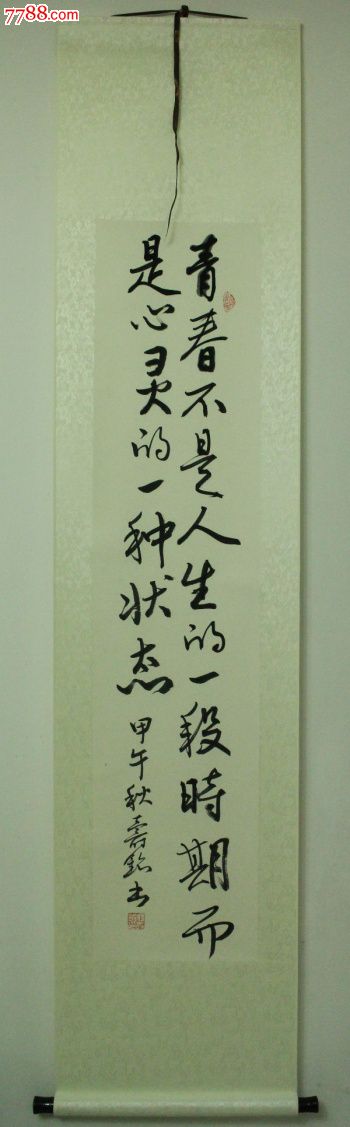 7788.com
青春不是人生的一段時期而
是心灵的一种状态
甲午秋嘉銘书